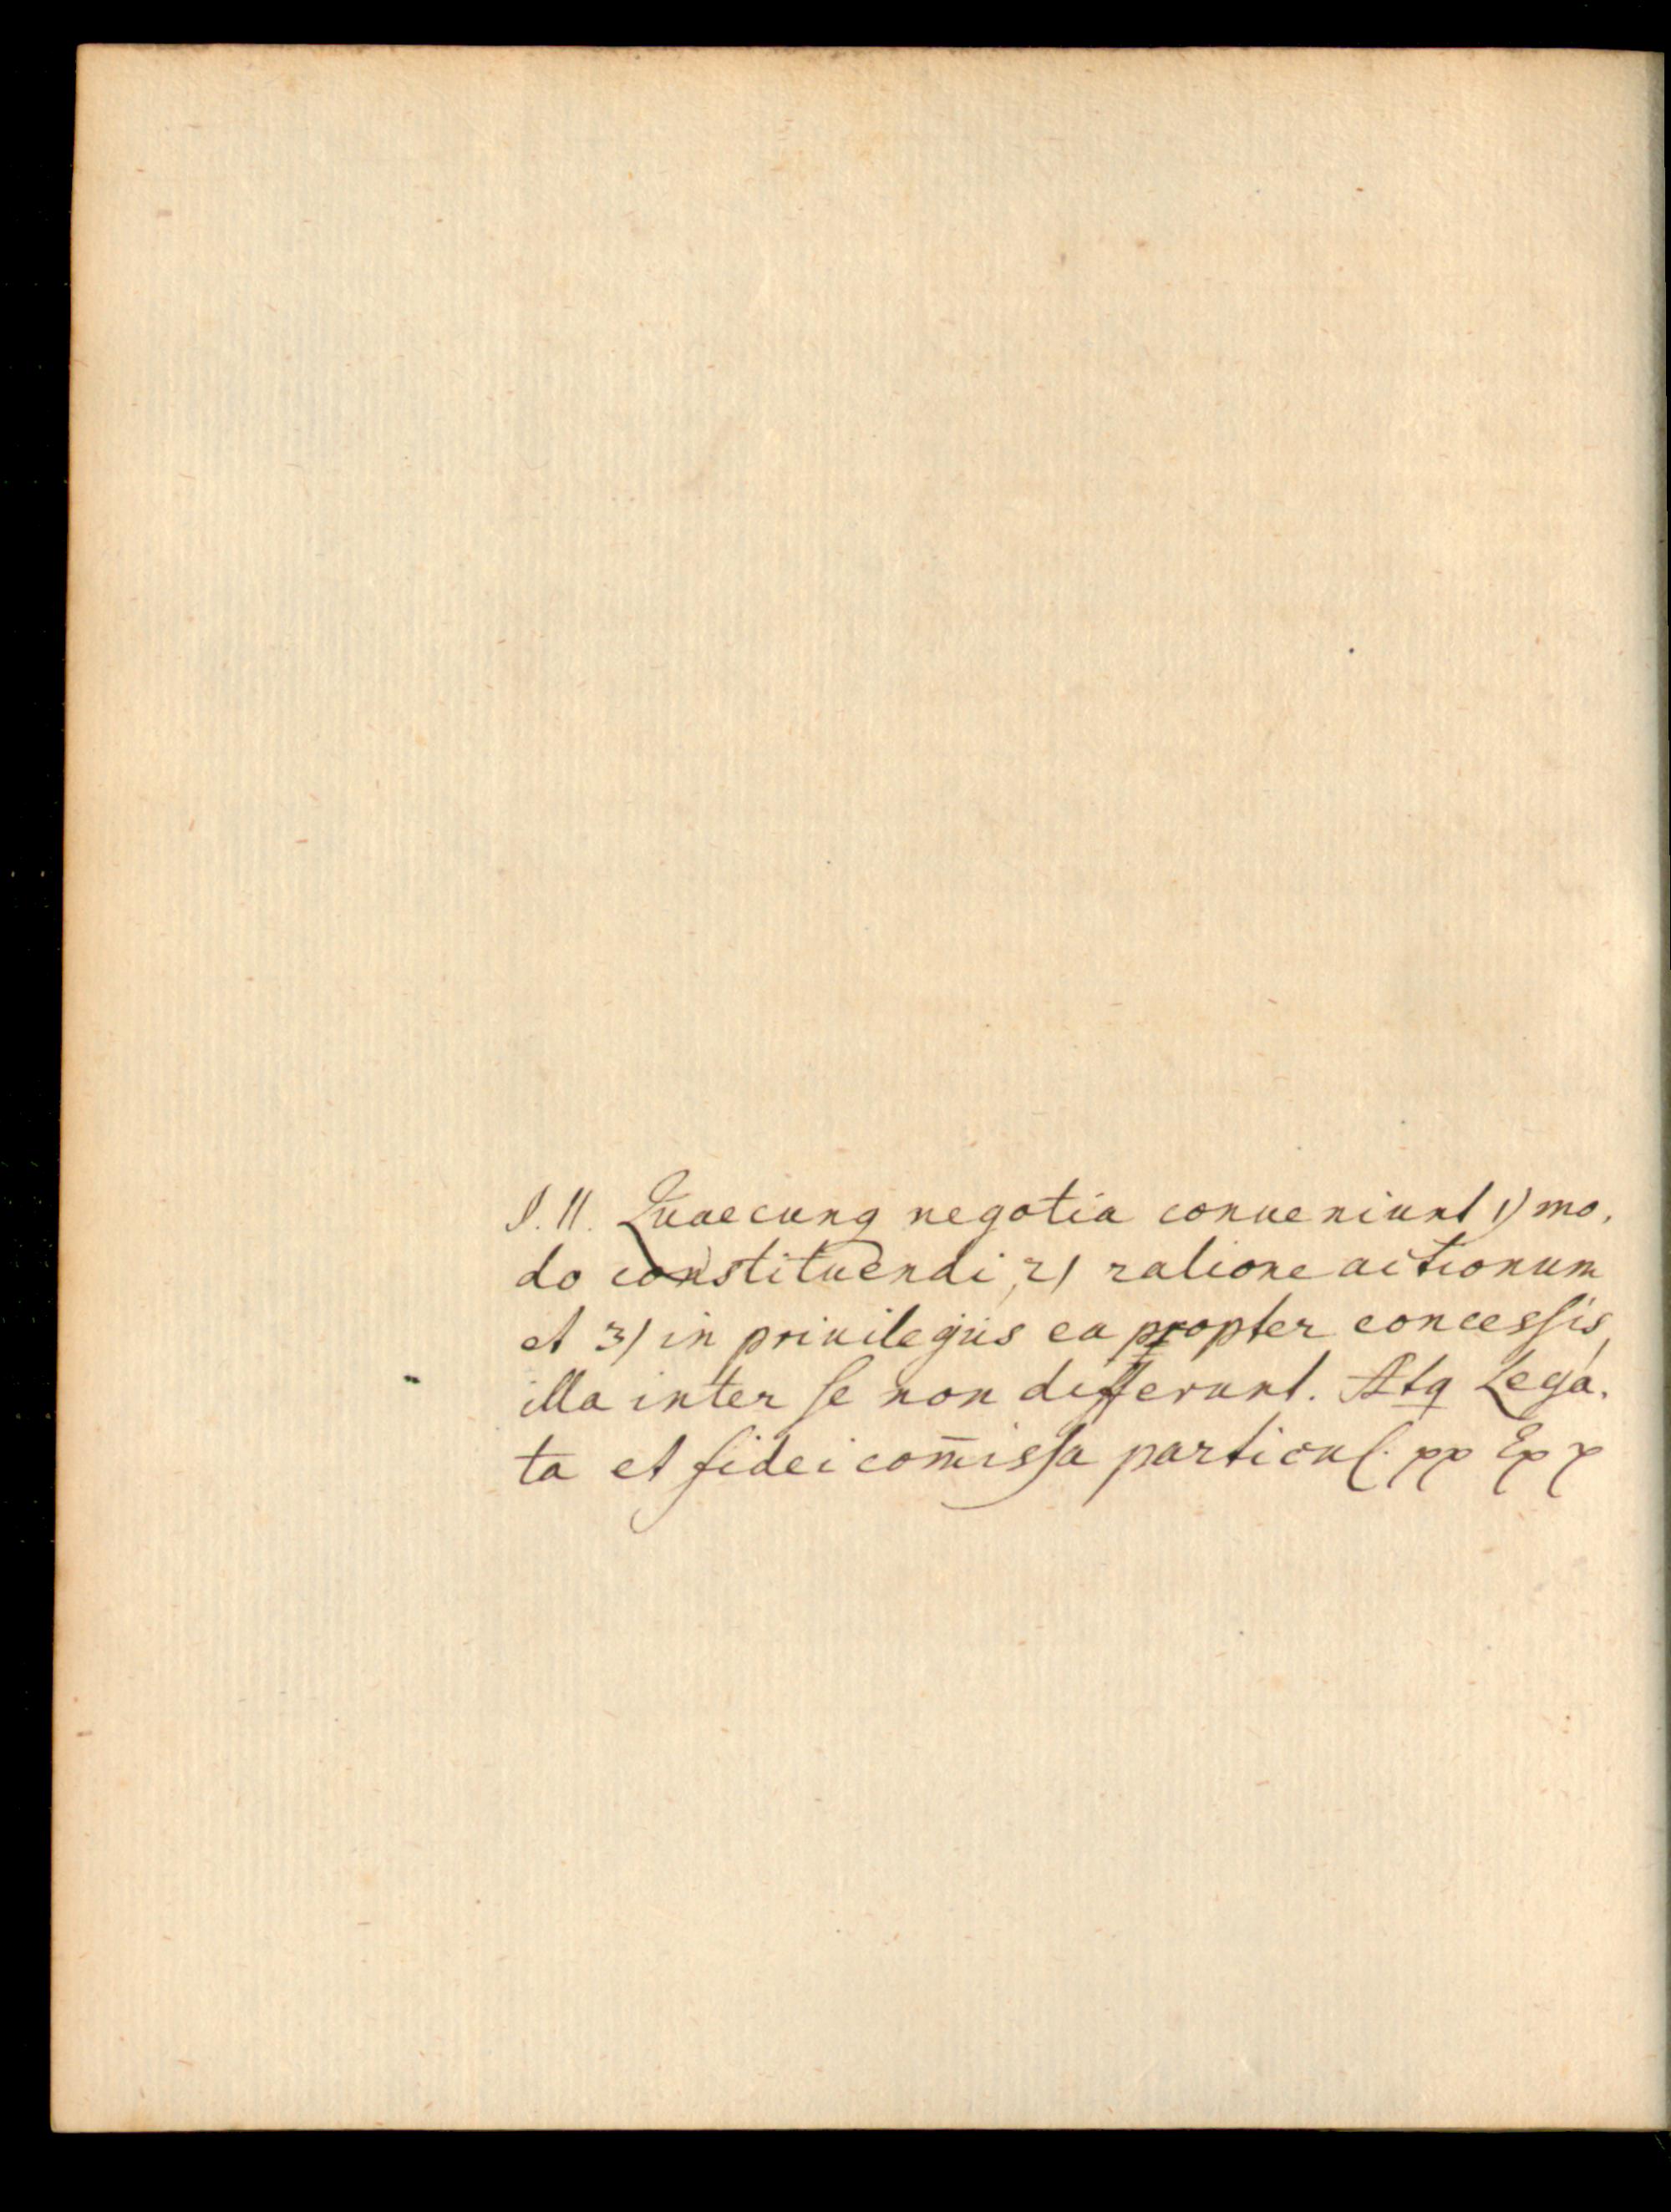 §. 11. Quaecunq negotia conueniunt 1) mo,
do constituendi, 2) ratione actionum
et 3) in priuilegiis ea propter concessis,
illa inter se non differunt. Atq Lega,
ta et fidei com̄issa particul. pp